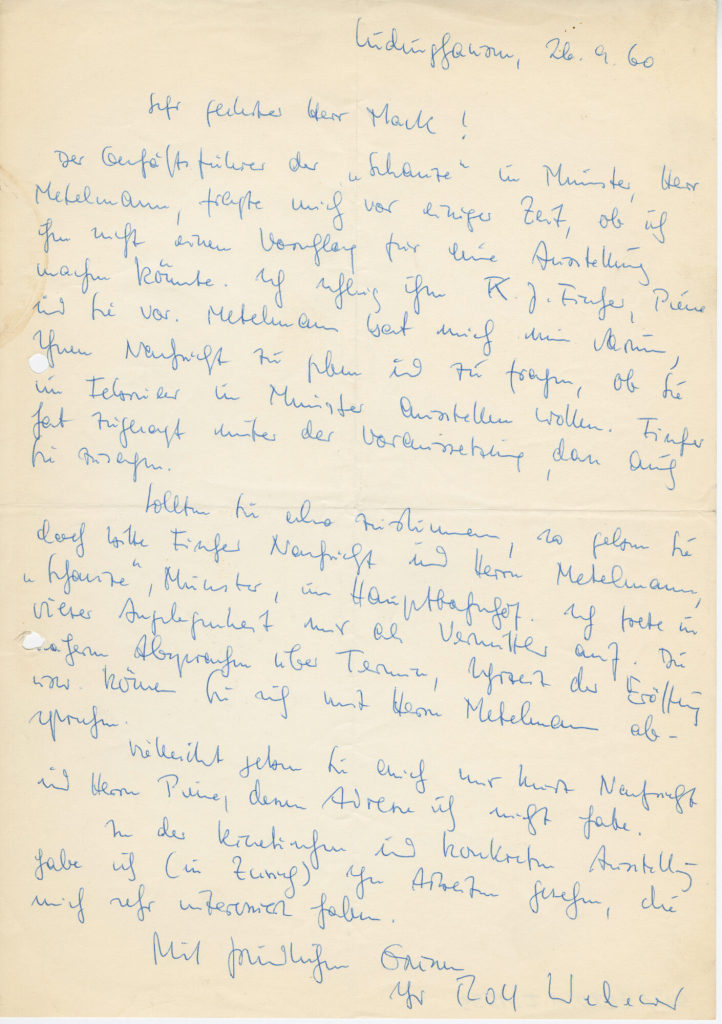 Lüdinghausen, 26. 9. 60
Sehr geehrter Herr Mack!
Der Geschäftsführer der „Schanze“ in Münster, Herr
Metelmann, fragte mich vor einiger Zeit, ob ich
ihm nicht einen Vorschlag für eine Ausstellung
machen könnte. Ich schlug ihm K. J. Fischer, Piene
und Sie vor. Metelmann bat mich nun darum,
Ihnen Nachricht zu geben und zu fragen, ob Sie
im Februar in Münster ausstellen wollen. Fischer
hat zugesagt unter der Voraussetzung, dass auch
Sie zusagen.
Sollten Sie also zustimmen, so geben Sie
doch bitte Fischer Nachricht und Herrn Metelmann,
„Schanze“, Münster, im Hauptbahnhof. Ich trete in
dieser Angelegenheit nur als Vermittler auf. Die
näheren Absprachen über Termin, Uhrzeit der Eröffnung
usw. können Sie mit Herrn Metelmann ab-
sprechen.
Vielleicht geben Sie auch mir kurz Nachricht
und Herrn Piene, dessen Adresse ich nicht habe.
In der kinetischen und konkreten Ausstellung
habe ich (in Zürich) Ihre Arbeiten gesehen, die
mich sehr interessiert haben.
Mit freundlichen Grüssen
Ihr Rolf